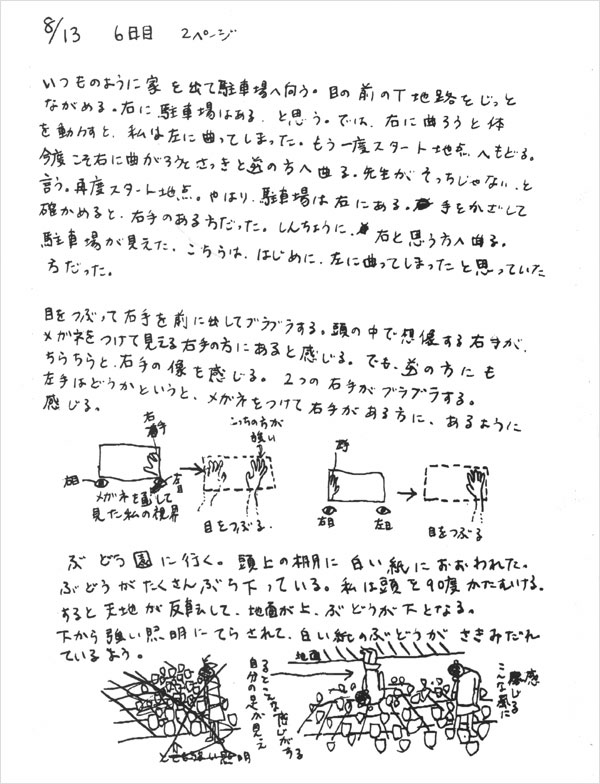 8/13 6日目 2ページ
いつものように家を出て駐車場へ向う。目の前のT地路をじっと
ながめる。右に駐車場はある、と思う。では、右に曲ろうと体
を動かすと、私は左に曲ってしまった。もう一度スタート地点へもどる。
今度こそ右に曲がろうとさっきと逆の方へ曲る。先生がそっちじゃない、と
言う。再度スタート地点。やはり、駐車場は右にある。手をかざして
確かめると、右手のある方だった。しんちょうに、右と思う方へ曲る。
駐車場が見えた、こちらは、はじめに、左に曲ってしまったと思っていた
方だった。
目をつぶって右手を前に出してブラブラする。頭の中で想像する右手が、
メガネをつけて見える右手の方にあると感じる。でも、逆の方にも
ちらちらと、右手の像を感じる。2つの右手がブラブラする。
左手はどうかというと、メガネをつけて右手がある方に、あるように
感じる。
右手
こっちの方が強い
右目
左目
メガネを通して
見た私の視界
目をつぶる
右目
左目
目をつぶる
ぶどう園に行く。頭上の棚に白い紙におおわれた。
ぶどうがたくさんぶら下っている。私は頭を90度かたむける。
すると天地が反転して、地面が上、ぶどうが下となる。
下から強い照明にてらされて、白い紙のぶどうがさきみだれ
ているよう。
とても強い照明
自分の足が見え
るとこんな感じがする
地面
こんな風に
感じる